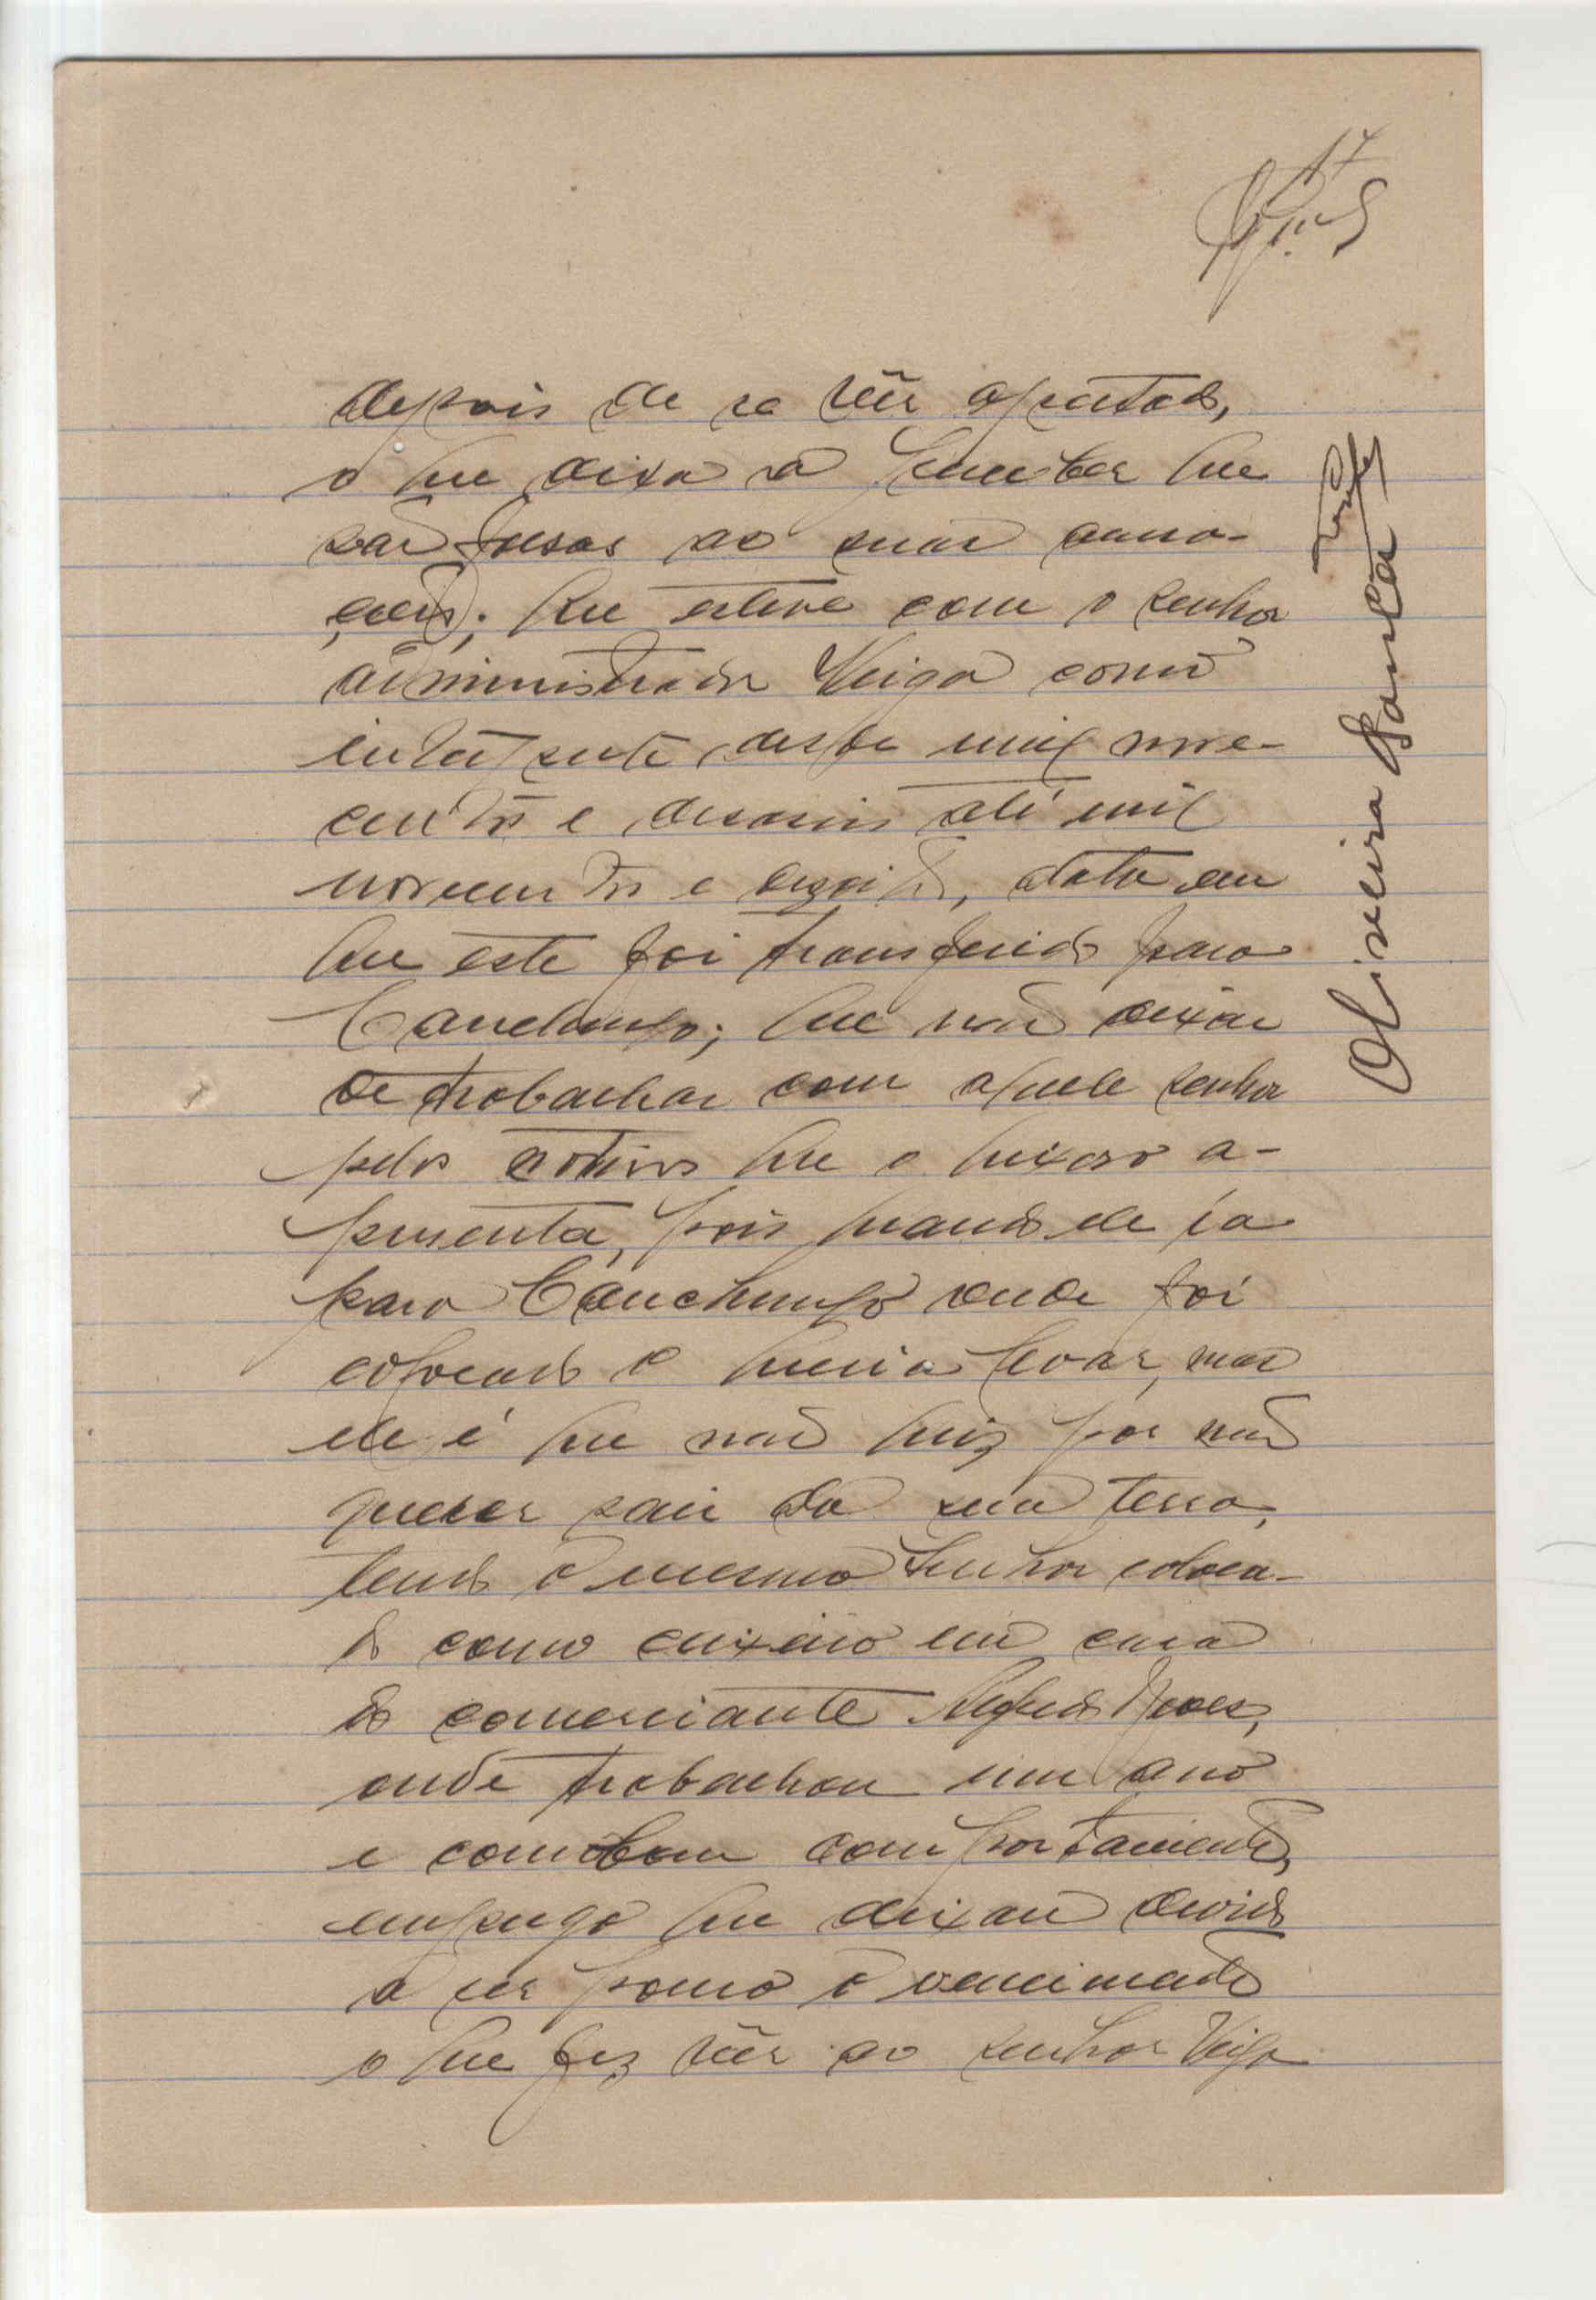 17
depois de se vêr apertado,
o que deixa a perceber que
são falsas as suas acusa-
ções; Que esteve com o senhor
administrador Veiga como
intérprete desde mil nove-
centos e desaseis até mil
novecentos e dezoito, data em
que este foi transferido para
Canchungo; que não deixou
de trabalhar com aquele senhor
pelos motivos que o queixoso a-
presenta, pois quando ele ia
para Canchungo onde foi
colocado o queria levar, mas
ele é que não quiz por não
querer sair da sua terra,
tendo o mesmo senhor coloca-
do como caixeiro em casa
do comerciante Neves,
onde trabalhou um ano
e com bom comportamento,
emprego que deixou devido
a ser pouco o vencimento
o que fez vêr ao senhor Veiga
Oliveira Sancha